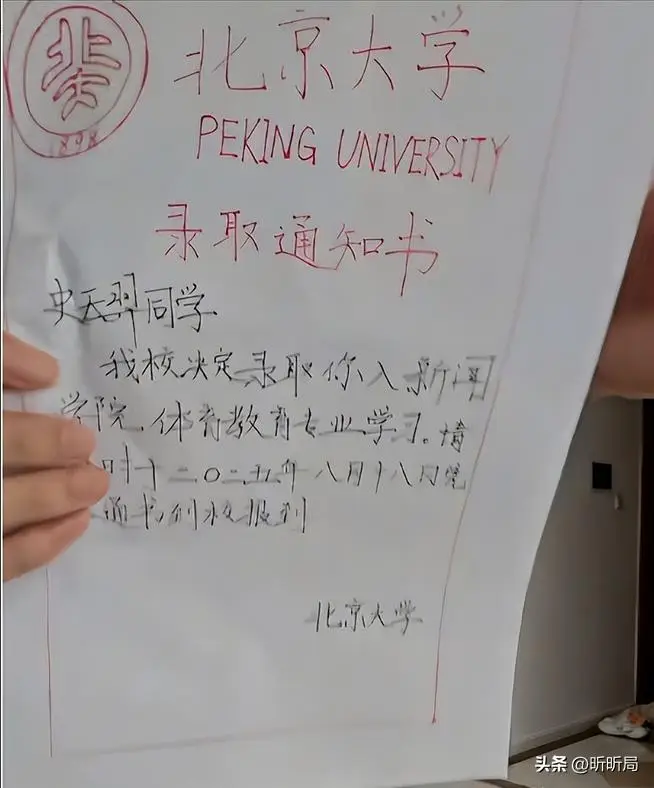 1898
北京大学
PEKING UNIVERSITY
录取通知书
史天羿同学
我校决定录取你入新闻
学院,体育教育专业学习。请
时于二〇二五年八月十八日凭
通书到校报到
北京大学
头条 @昕昕局